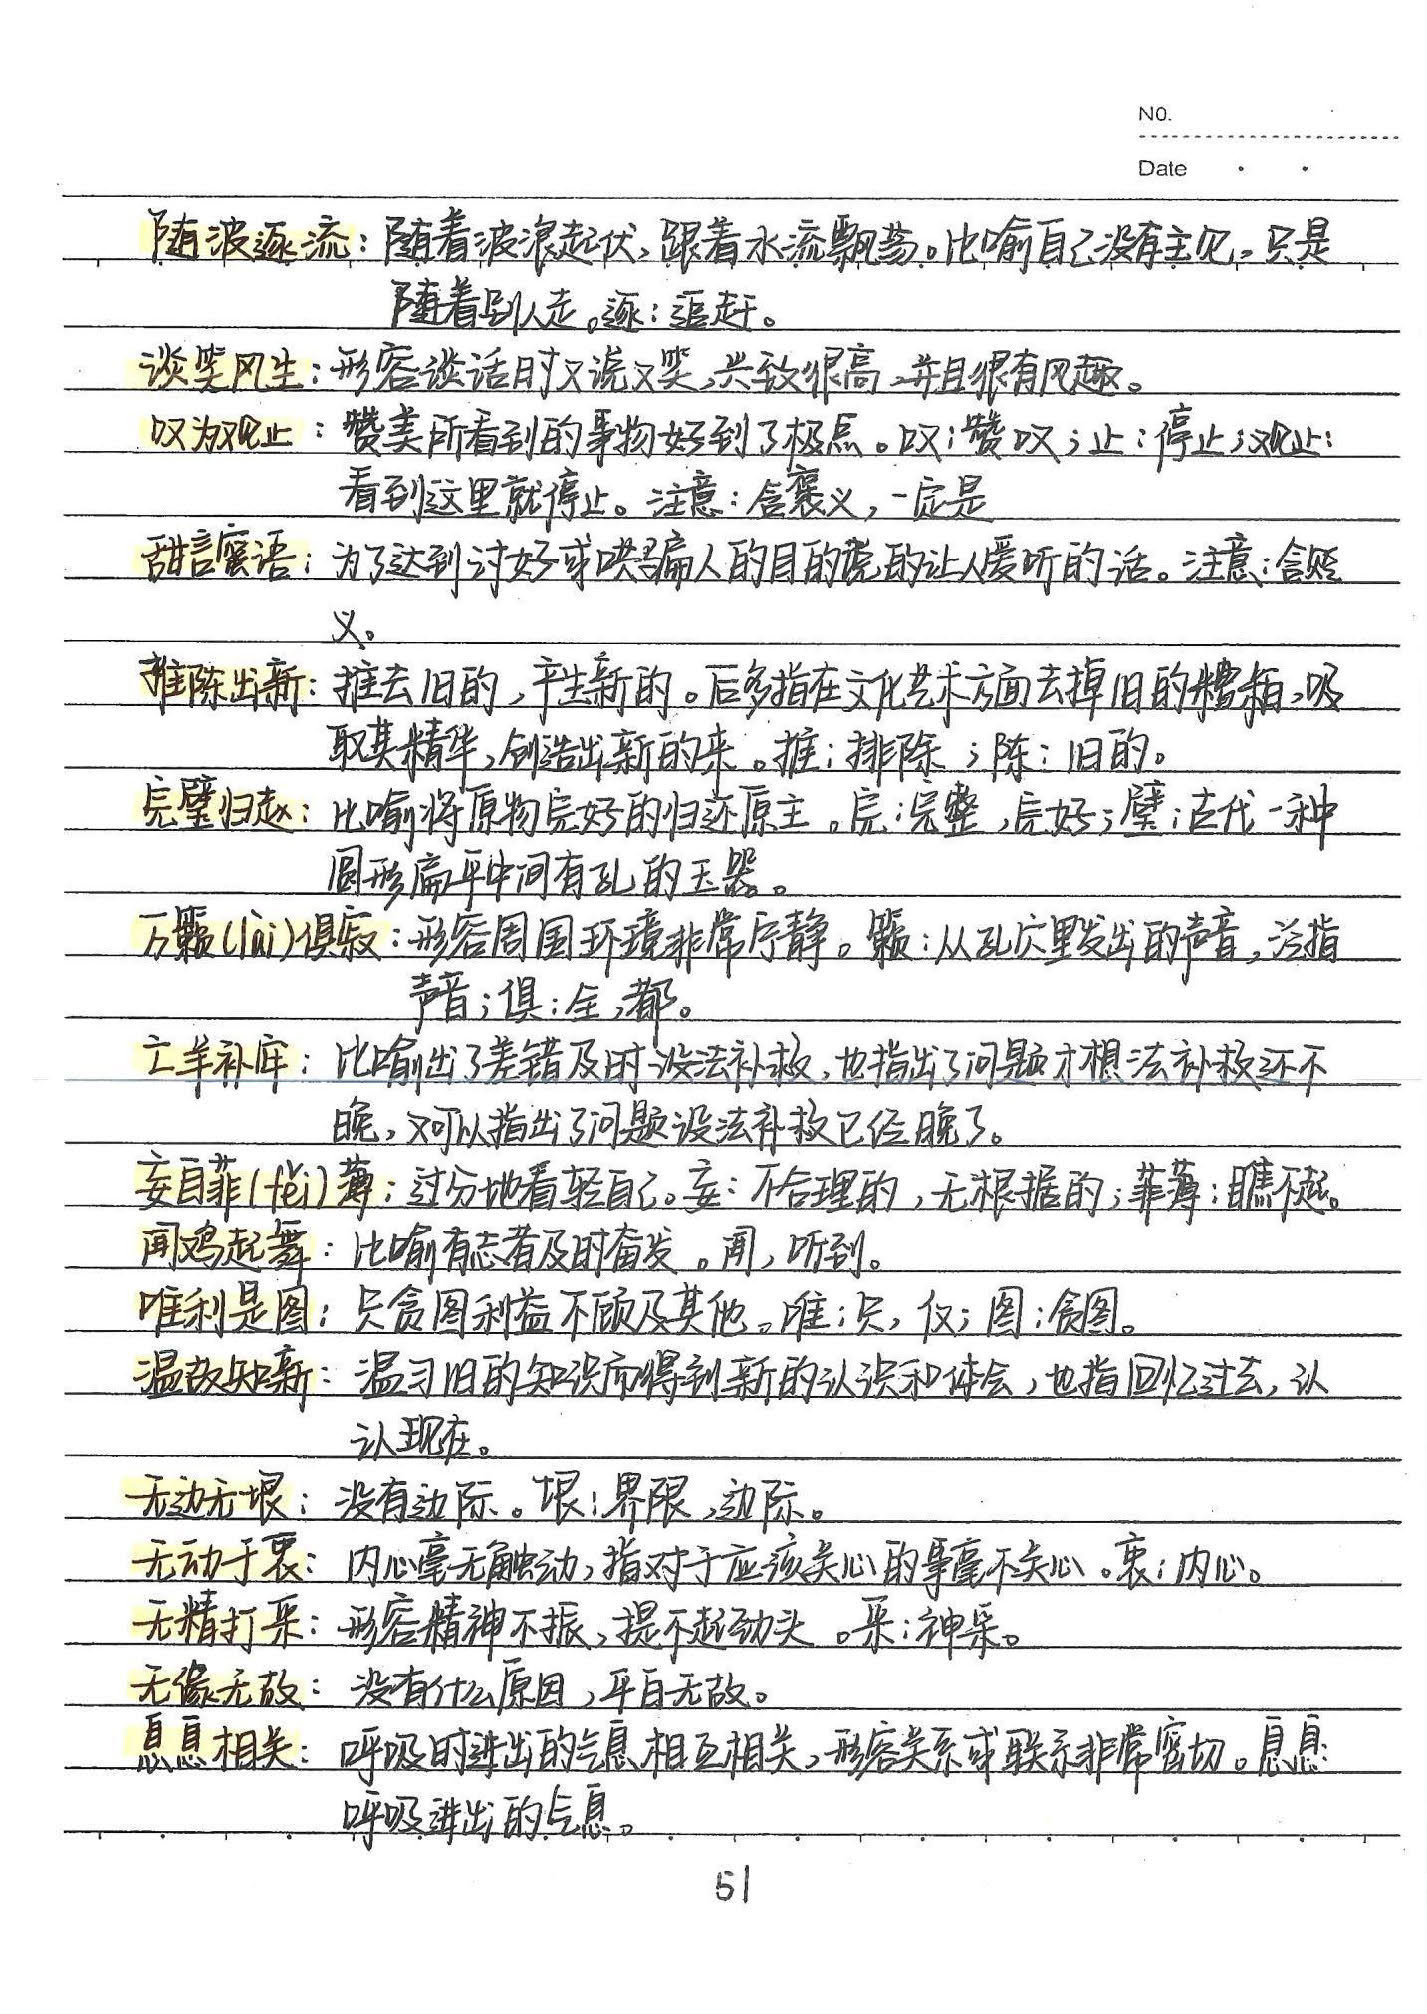 NO.
Date
随波逐流：随着波浪起伏，跟着水流飘荡。比喻自己没有主见，只是
随着别人走。逐：追赶。
谈笑风生：形容谈话时又说又笑，兴致很高，并且很有风趣。
叹为观止：赞美所看到的事物好到了极点。叹：赞叹；止：停止；观止：
看到这里就停止。注意：含褒义，一定是
甜言蜜语：为了达到讨好或哄骗人的目的说的让人爱听的话。注意：含贬
义。
推陈出新：推去旧的，产生新的。后多指在文化艺术方面去掉旧的糟粕，吸
取其精华，创造出新的来。推：排除；陈：旧的。
完璧归赵：比喻将原物完好的归还原主。完：完整，完好；璧：古代一种
圆形扁平中间有孔的玉器。
万籁(lài)俱寂：形容周围环境非常宁静。籁：从孔穴里发出的声音，泛指
声音；俱：全，都。
亡羊补牢：比喻出了差错及时设法补救，也指出了问题才想法补救还不
晚，又可以指出了问题设法补救已经晚了。
妄自菲(fěi)薄：过分地看轻自己。妄：不合理的，无根据的；菲薄：瞧不起。
闻鸡起舞：比喻有志者及时奋发。闻，听到。
唯利是图：只贪图利益不顾及其他。唯：只，仅；图：贪图。
温故知新：温习旧的知识而得到新的认识和体会，也指回忆过去，认
认现在。
无边无垠：没有边际。垠：界限，边际。
无动于衷：内心毫无触动，指对于应该关心的事毫不关心。衷：内心。
无精打采：形容精神不振，提不起劲头。采：神采。
无缘无故：没有什么原因，平白无故。
息息相关：呼吸时进出的气息相互相关，形容关系或联系非常密切。息息：
呼吸进出的气息。
51